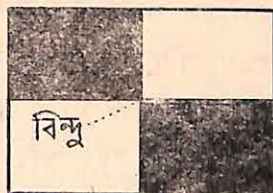 বিন্দু